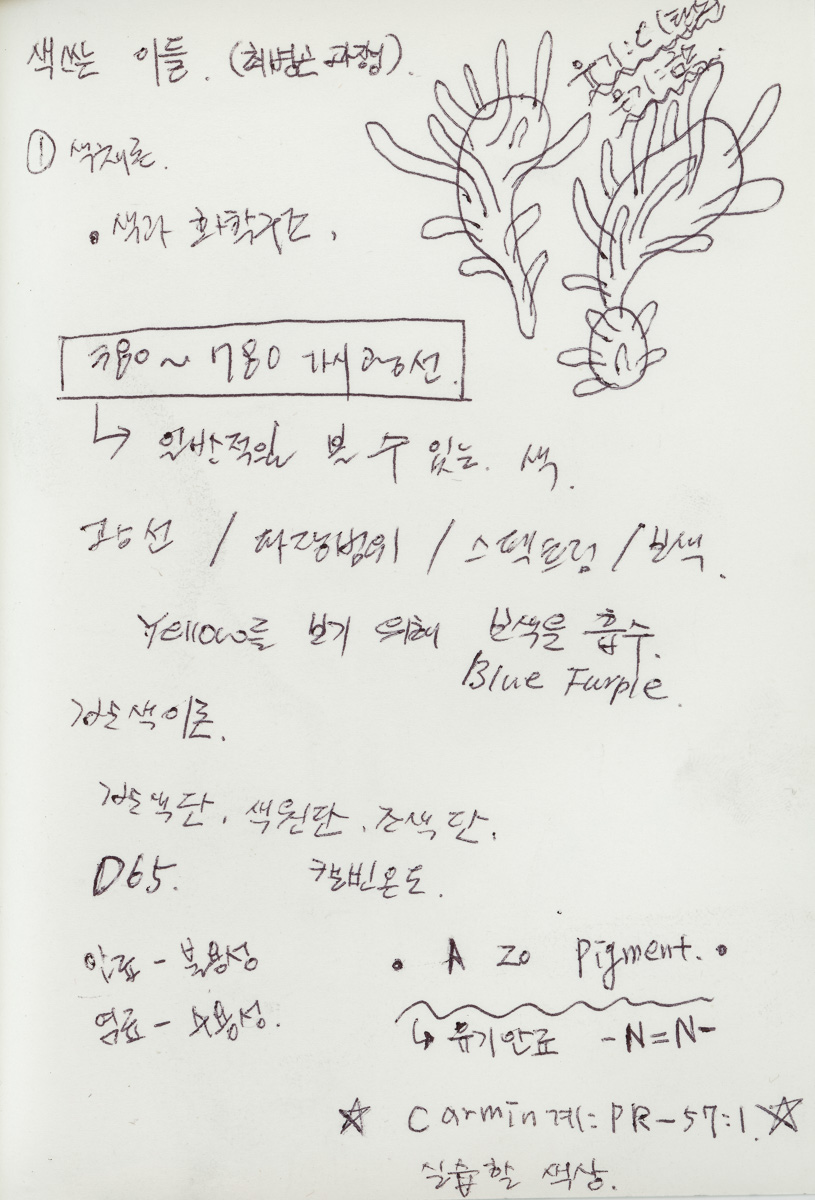 색쓰는 이들. (최병소 과정).
유기: C (탄소
무기: 금속.
① 색재료.
• 색과 화학구조.
380 ~ 780 가시광선.
↳ 일반적인 볼 수 있는. 색.
광선 / 파장범위 / 스펙트럼 / 보색.
Yellow를 보기 위해 보색을 흡수.
Blue Furple.
발색이론.
발색단. 색원단. 조색단.
D65. 캘빈온도.
안료 - 불용성
염료 - 수용성.
• Azo Pigment. •
↳ 유기안료 -N=N-
☆ Carmin계: PR-57:1. ☆
실습할 색상.